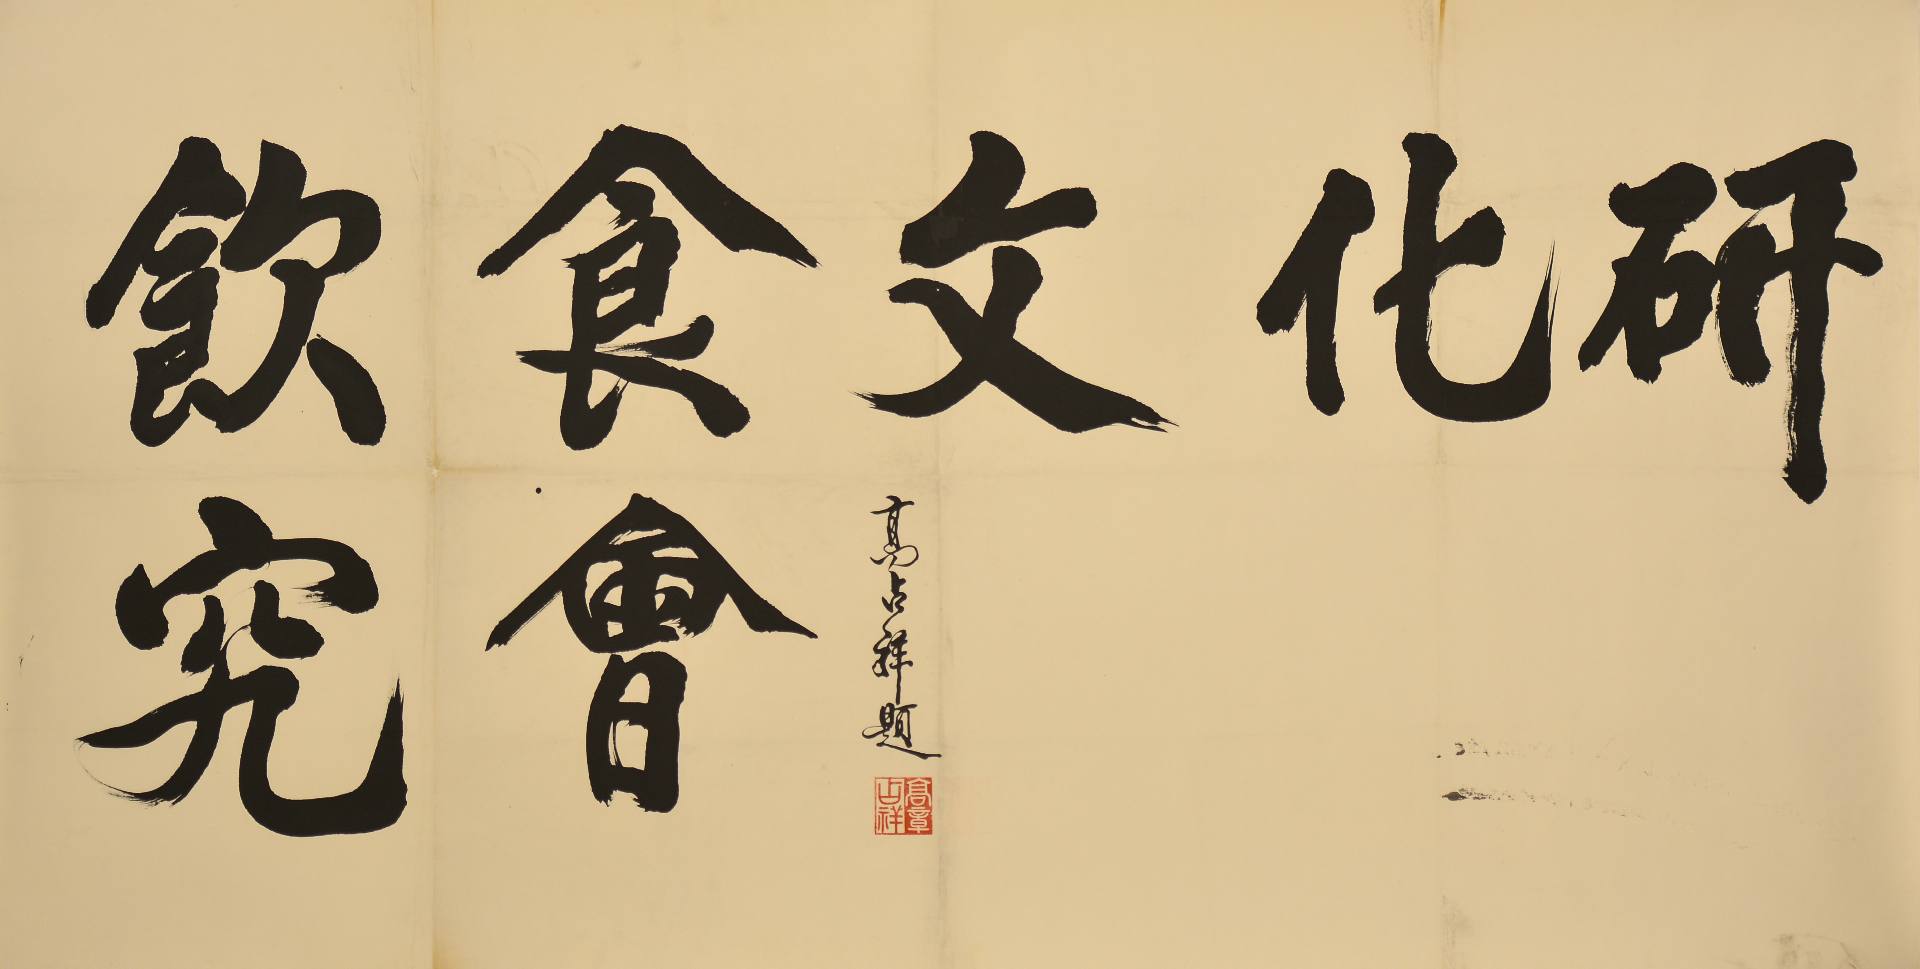 飲食文化研
究會
高占祥題
高占祥章